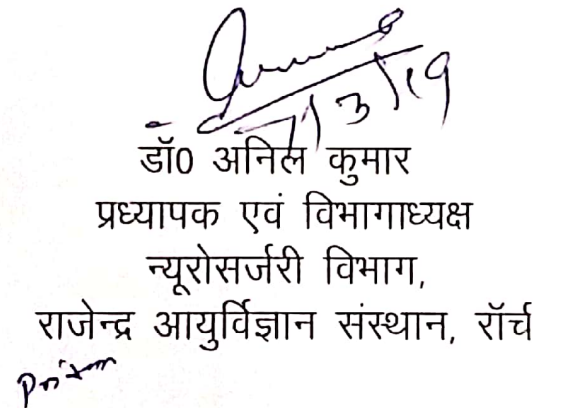 7/3/19
डॉ0 अनिल कुमार
प्रध्यापक एवं विभागाध्यक्ष
न्यूरोसर्जरी विभाग,
राजेन्द्र आयुर्विज्ञान संस्थान, रॉर्च